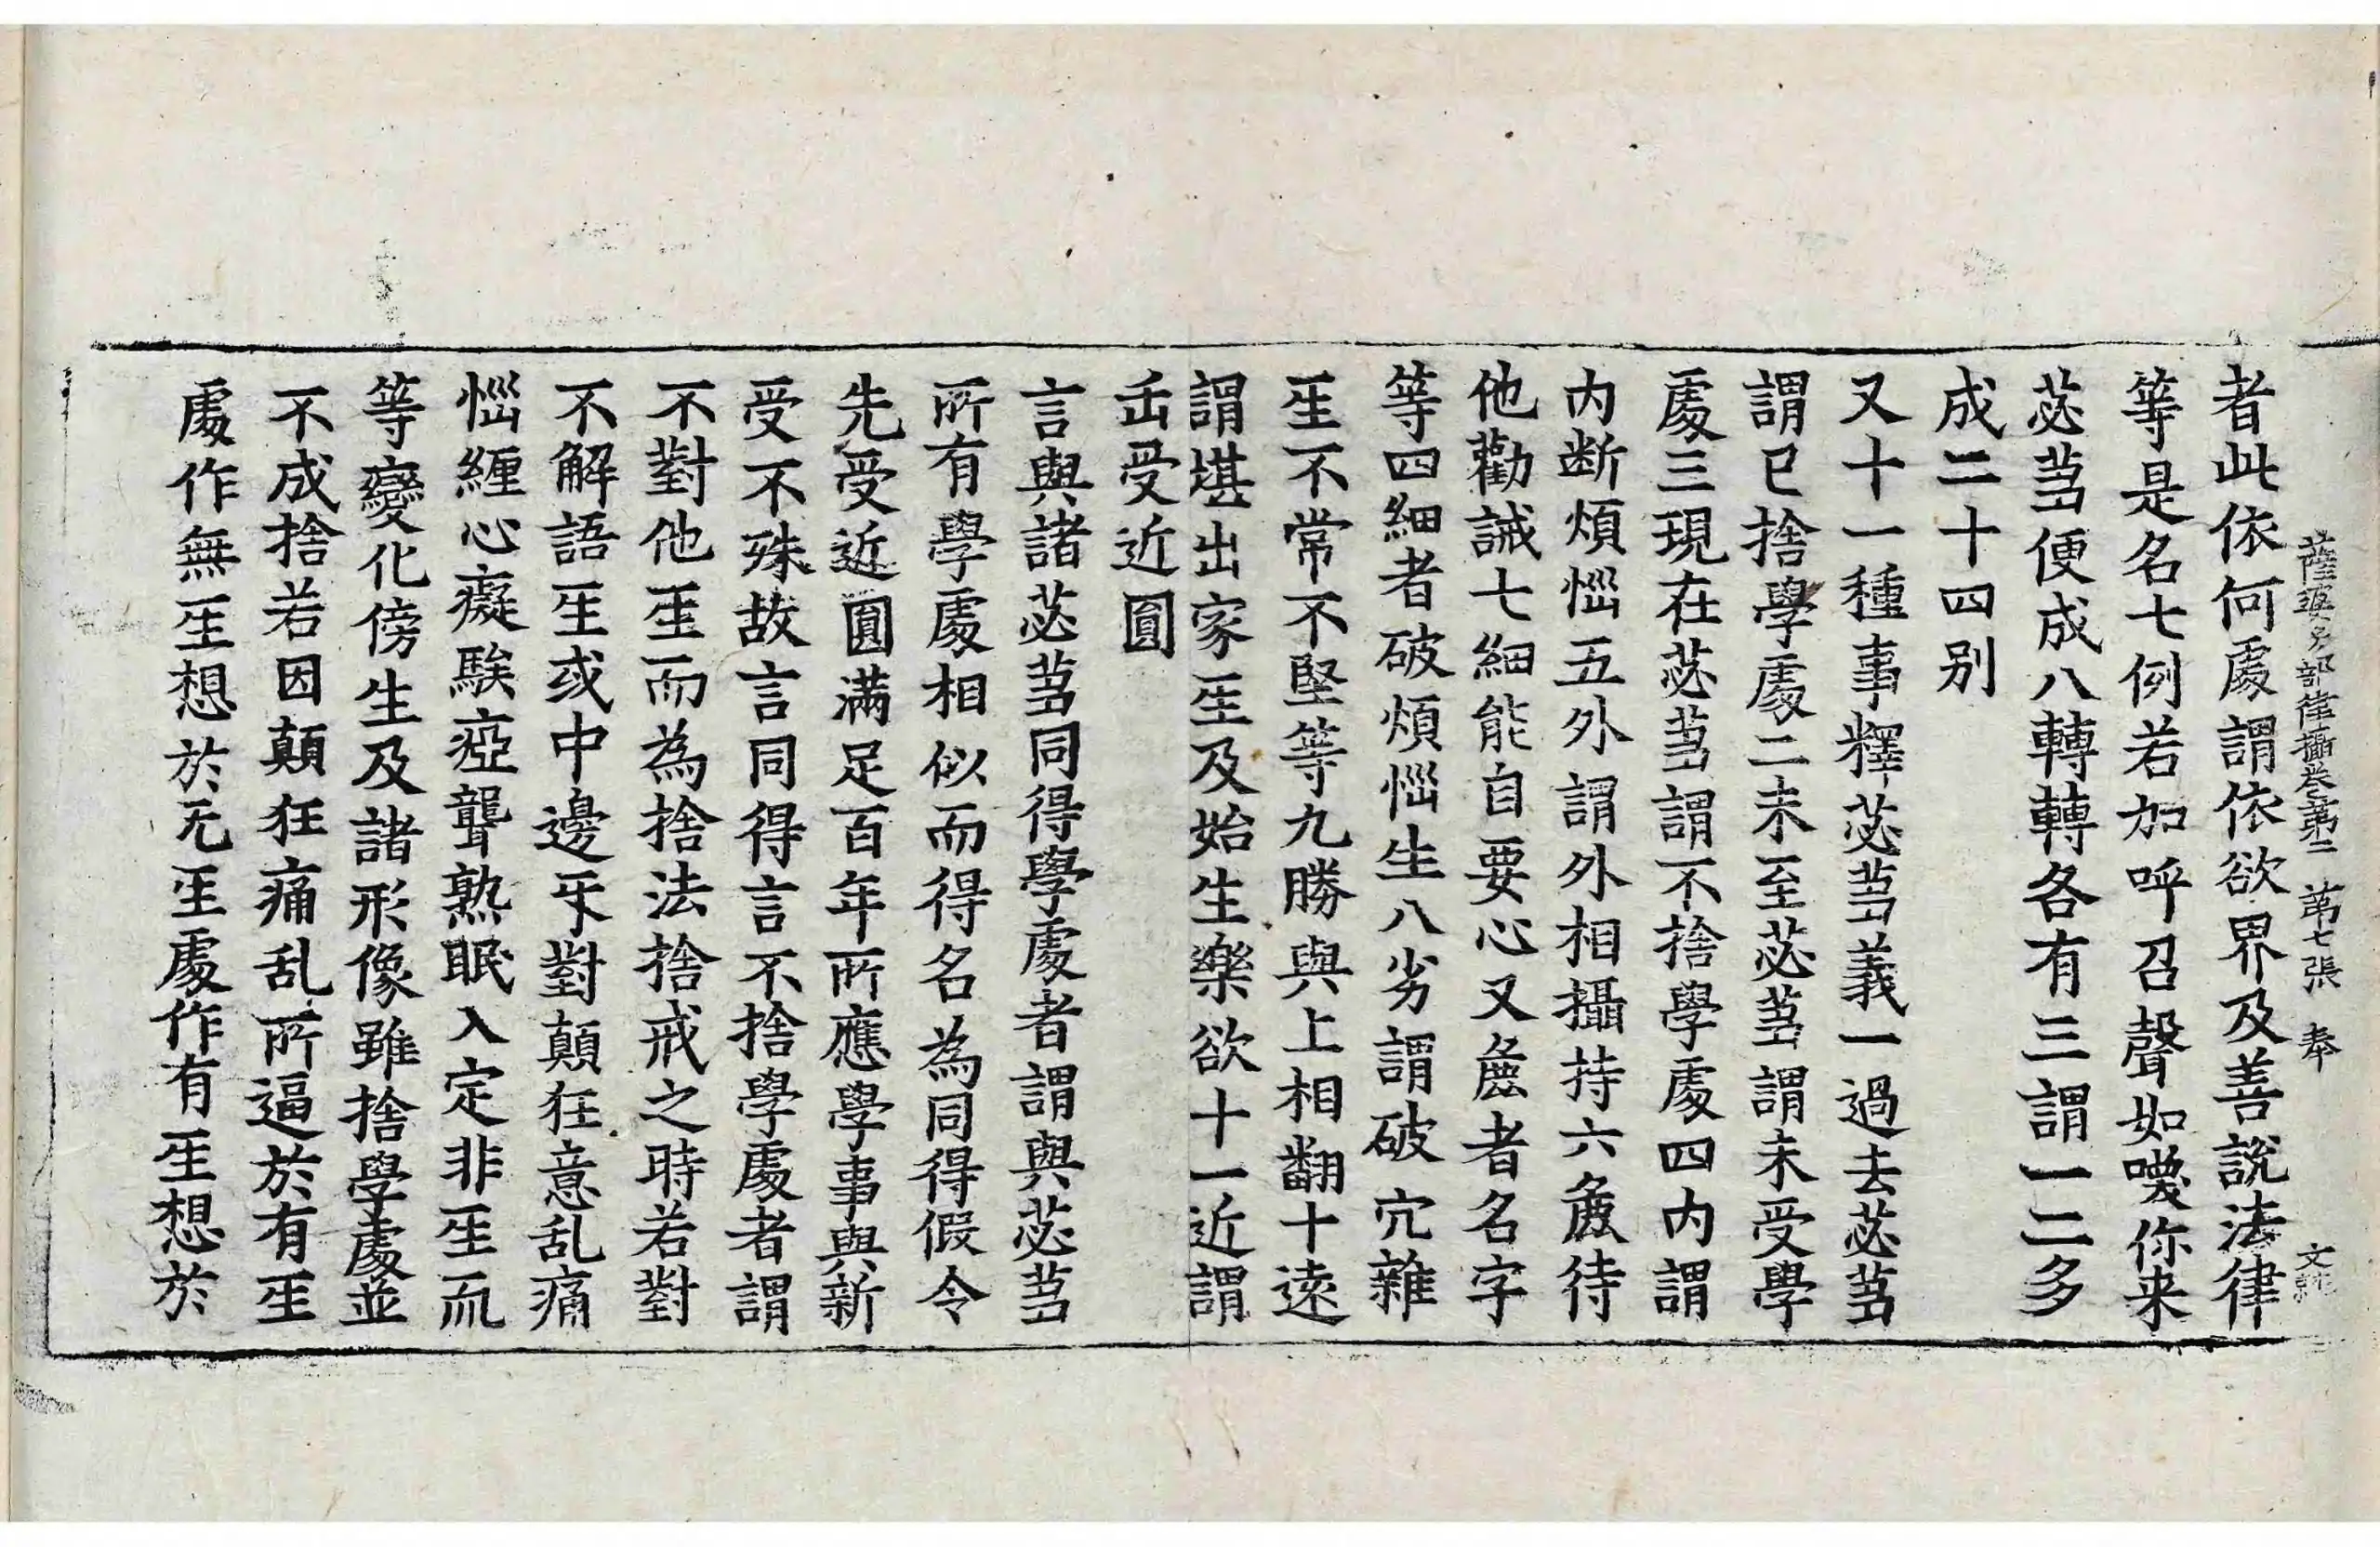 薩婆多部律攝卷苐二 苐七張 奉
者此依何處謂依欲界及善說法律
等是名七例若加呼召聲如喚你来
苾蒭便成八轉轉各有三謂一二多
成二十四别
又十一種事釋苾蒭義一過去苾蒭
謂已捨學處二未至苾蒭謂未受學
處三現在苾蒭謂不捨學處四内謂
内断煩惱五外謂外相攝持六麁待
他勸誡七細能自要心又麁者名字
等四細者破煩惱生八劣謂破穴雜
𤯔不常不堅等九勝與上相翻十遠
謂堪出家𤯔及始生樂欲十一近謂
缶受近圓
言與諸苾蒭同得學處者謂與苾蒭
所有學處相似而得名為同得假令
先受近圓滿足百年所應學事與新
受不殊故言同得言不捨學處者謂
不對他𤯔而為捨法捨戒之時若對
不解語𤯔或中邊㸦對顛狂意乱痛
惱纏心癡騃瘂聾熟眠入定非𤯔而
等變化傍生及諸形像雖捨學處並
不成捨若因顛狂痛乱所逼於有𤯔
處作無𤯔想於无𤯔處作有𤯔想於